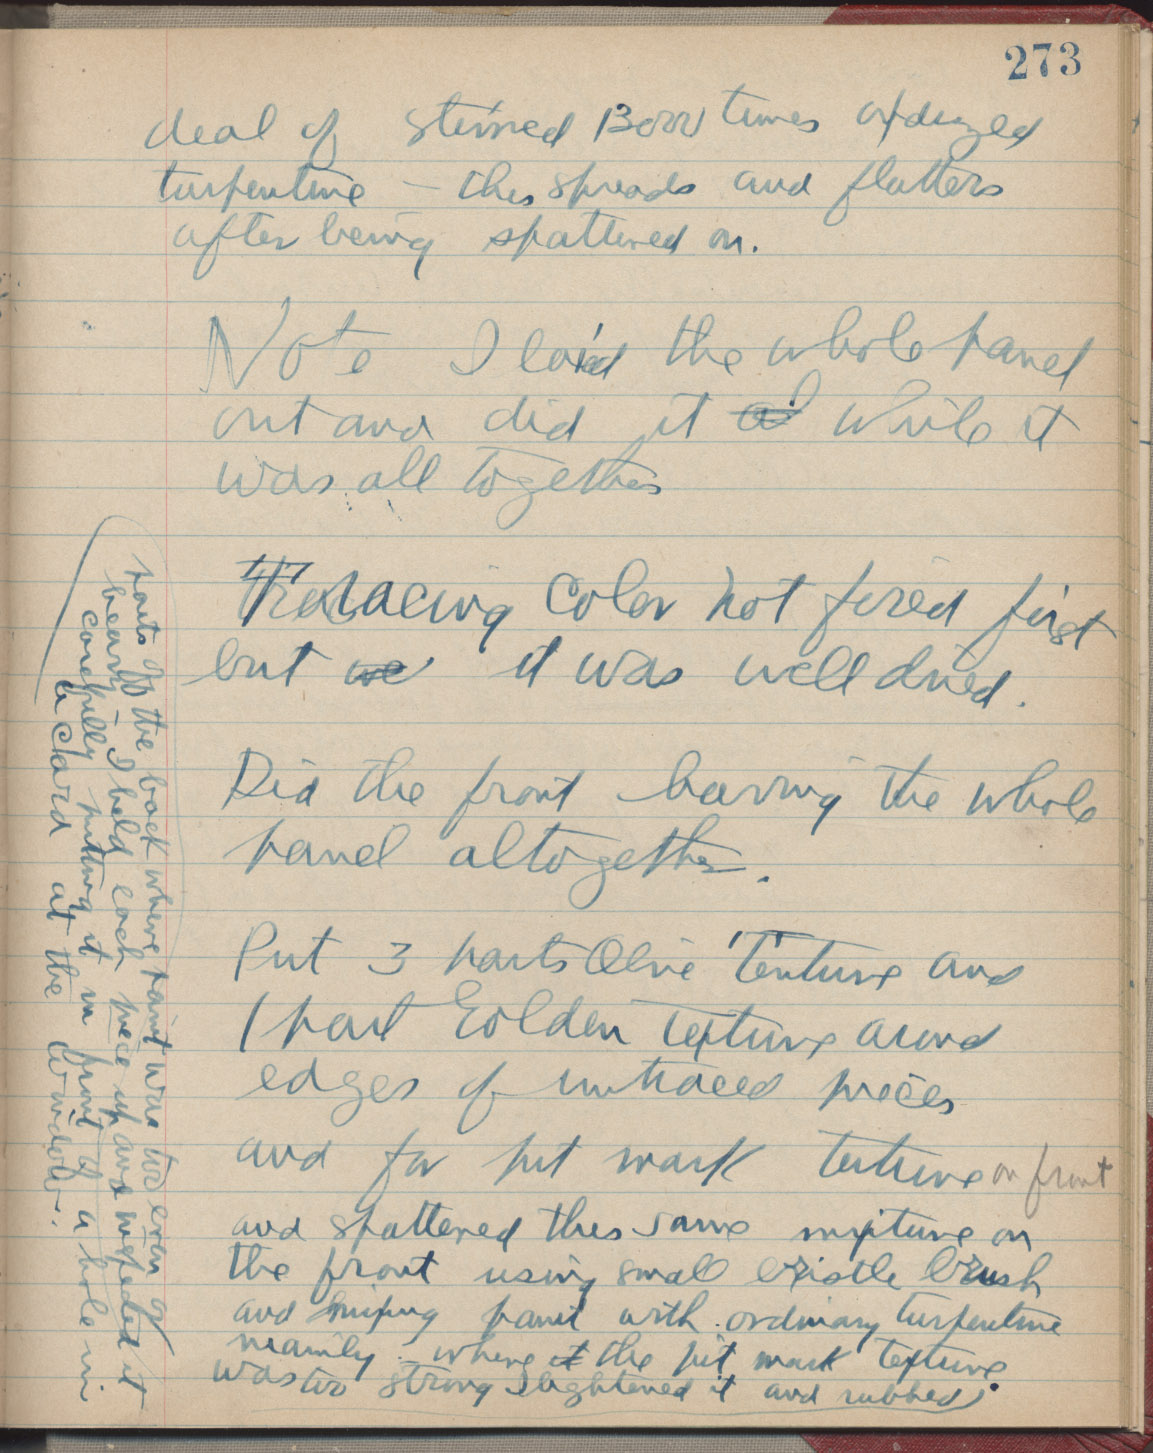 273
deal of stirred Borr times oxdized
turpentine — this spreads and flatters
after being spattered on.
Note I laid the whole panel
out and did it while it
was all together
Tracing Color not fired first
but we it was well dried.
Did the front having the whole
panel altogether.
Put 3 parts Olive Texture and
1 part Golden texture around
edges of untraced pieces
and for pit mark texture on front
and spattered this same mixture on
the front using small bristle brush
and mixing paint with ordinary turpentine
mainly. where it the pit mark texture
was too strong I lightened it and rubbed
parts of the back where paint was too even or
heavy. I held each piece up and inspected it
carefully putting it in front of a hole in
a card at the window.